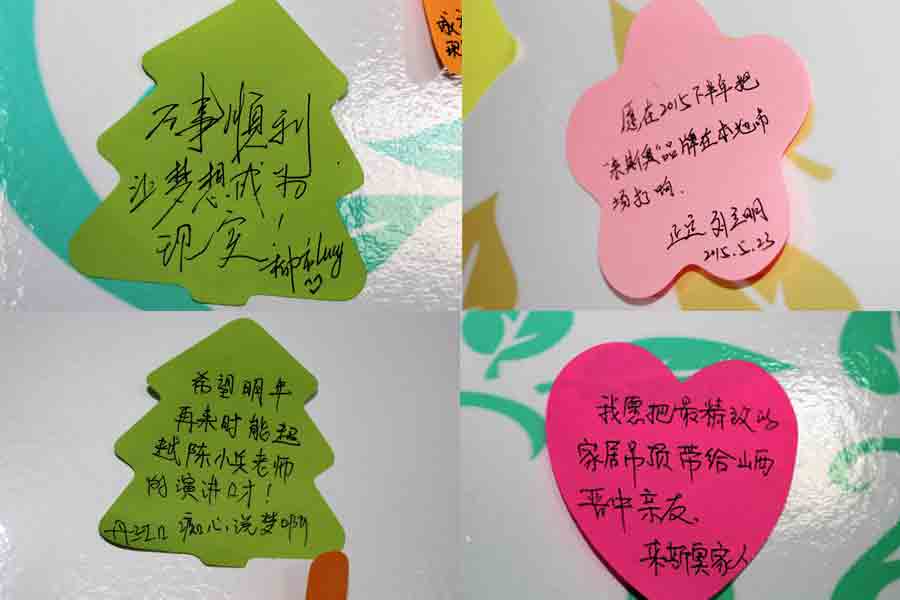 万事顺利
让梦想成为
现实!
Lucy
愿在2015下半年把
"来斯奥"品牌在本地市
场打响.
正定 刘立明
2015.5.23
希望明年
再来时能超
越陈小兵老师
的演讲口才!
丹江口 痴心说梦啊
我愿把最精致的
家居吊顶带给山西
晋中亲友.
来斯奥家人